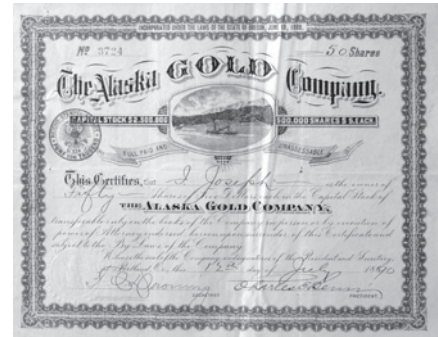 INCORPORATED UNDER THE LAWS OF THE STATE OF OREGON, JUNE 10, 1890.
No 3724
50 Shares
The Alaska GOLD Company.
CAPITAL STOCK $2,500,000
500,000 SHARES $5. EACH.
FULL PAID AND
UNASSESSABLE
This Certifies, that I. Joseph is the owner of
Fifty Shares in the Capital Stock of
THE ALASKA GOLD COMPANY,
transferable only on the books of the Company in person or by execution of
power of Attorney endorsed hereon, on surrender of this Certificate and
subject to the By Laws of the Company.
Witness the seal of the Company and signatures of the President and Secretary,
at Portland Or. this 12th day of July 1890
SECRETARY
PRESIDENT.